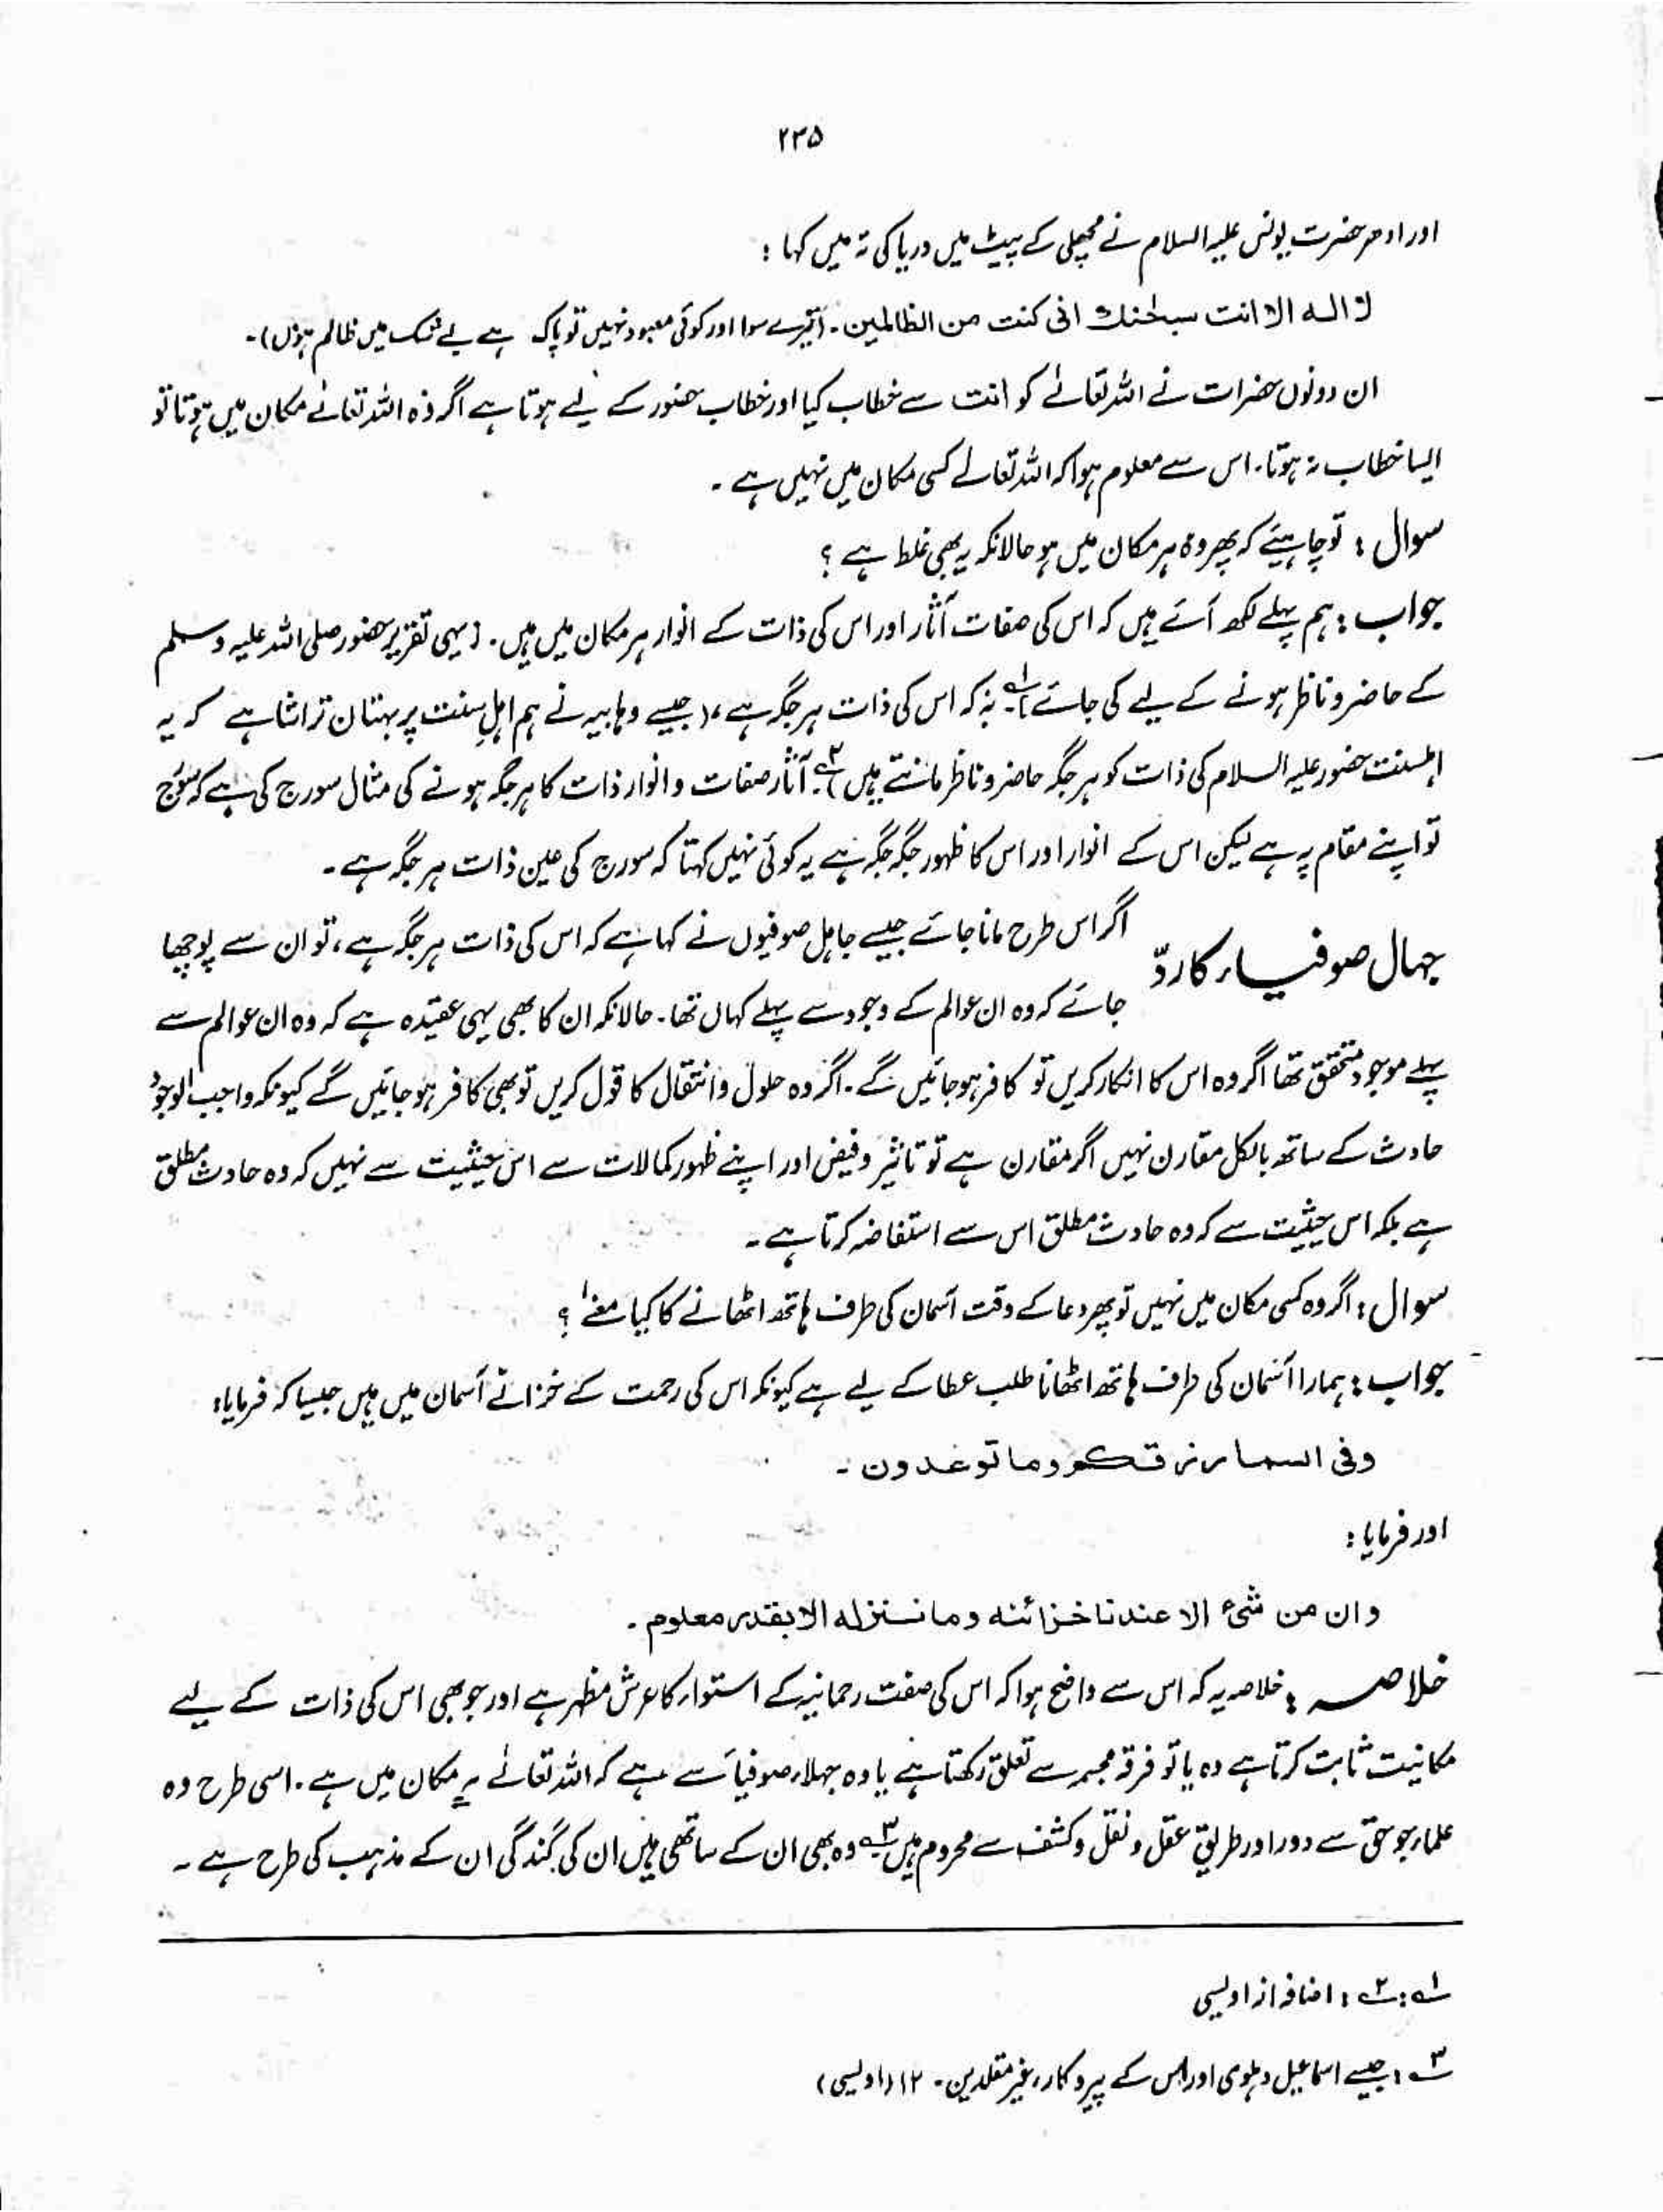 ۲۳۵
اور ادھر حضرت یونس علیہ السلام نے مچھلی کے پیٹ میں دریا کی تہ میں کہا :
لا الہ الا انت سبحٰنک انی کنت من الظالمین ۔ (تیرے سوا اور کوئی معبود نہیں تو پاک ہے بے شک میں ظالم ہوں)۔
ان دونوں حضرات نے اللہ تعالےٰ کو انت سے خطاب کیا اور خطاب حضور کے لیے ہوتا ہے اگر وہ اللہ تعالےٰ مکان میں ہوتا تو
ایسا خطاب نہ ہوتا۔ اس سے معلوم ہوا کہ اللہ تعالےٰ کسی مکان میں نہیں ہے ۔
سوال : تو چاہیئے کہ پھر وہ ہر مکان میں ہو حالانکہ یہ بھی غلط ہے ؟
جواب : ہم پہلے لکھ آئے ہیں کہ اس کی صفات آثار اور اس کی ذات کے انوار ہر مکان میں ہیں ۔ [یہی تقریر حضور صلی اللہ علیہ وسلم
کے حاضر و ناظر ہونے کے لیے کی جائے]۱؎ نہ کہ اس کی ذات ہر جگہ ہے ، (جیسے وہابیہ نے ہم اہلِ سنت پر بہتان تراشا ہے کہ یہ
اہلسنت حضور علیہ السلام کی ذات کو ہر جگہ حاضر و ناظر مانتے ہیں)۲؎ ۔ آثار صفات و انوار ذات کا ہر جگہ ہونے کی مثال سورج کی ہے کہ سورج
تو اپنے مقام پر ہے لیکن اس کے انوار اور اس کا ظہور جگہ جگہ ہے یہ کوئی نہیں کہتا کہ سورج کی عین ذات ہر جگہ ہے ۔
جہال صوفیاء کا ردّ
اگر اس طرح مانا جائے جیسے جاہل صوفیوں نے کہا ہے کہ اس کی ذات ہر جگہ ہے ، تو ان سے پوچھا
جائے کہ وہ ان عوالم کے وجود سے پہلے کہاں تھا ۔ حالانکہ ان کا بھی یہی عقیدہ ہے کہ وہ ان عوالم سے
پہلے موجود متحقق تھا اگر وہ اس کا انکار کریں تو کافر ہو جائیں گے ۔ اگر وہ حلول و انتقال کا قول کریں تو بھی کافر ہو جائیں گے کیونکہ واجب الوجود
حادث کے ساتھ بالکل مقارن نہیں اگر مقارن ہے تو تاثیر و فیض اور اپنے ظہور کمالات سے اس حیثیت سے نہیں کہ وہ حادث مطلق
ہے بلکہ اس حیثیت سے کہ وہ حادث مطلق اس سے استفاضہ کرتا ہے ۔
سوال : اگر وہ کسی مکان میں نہیں تو پھر دعا کے وقت آسمان کی طرف ہاتھ اٹھانے کا کیا معنےٰ ؟
جواب : ہمارا آسمان کی طرف ہاتھ اٹھانا طلب عطا کے لیے ہے کیونکہ اس کی رحمت کے خزانے آسمان میں ہیں جیسا کہ فرمایا :
وفی السماء رزقکم وما توعدون ۔
اور فرمایا :
وان من شیٔ الا عندنا خزائنہ وما ننزلہ الا بقدر معلوم ۔
خلاصہ : خلاصہ یہ کہ اس سے واضح ہوا کہ اس کی صفت رحمانیہ کے استواء کا عرش مظہر ہے اور جو بھی اس کی ذات کے لیے
مکانیت ثابت کرتا ہے وہ یا تو فرقہ مجسمہ سے تعلق رکھتا ہے یا وہ جہلاء صوفیأ سے ہے کہ اللہ تعالےٰ ہر مکان میں ہے ۔ اسی طرح وہ
علماء جو حق سے دور اور طریق عقل و نقل و کشف سے محروم ہیں۳؎ وہ بھی ان کے ساتھی ہیں ان کی گندگی ان کے مذہب کی طرح ہے ۔
۱؎ : ۲؎ : اضافہ از اویسی
۳؎ : جیسے اسماعیل دہلوی اور اس کے پیروکار ، غیر مقلدین ۔ ۱۲ (اویسی)